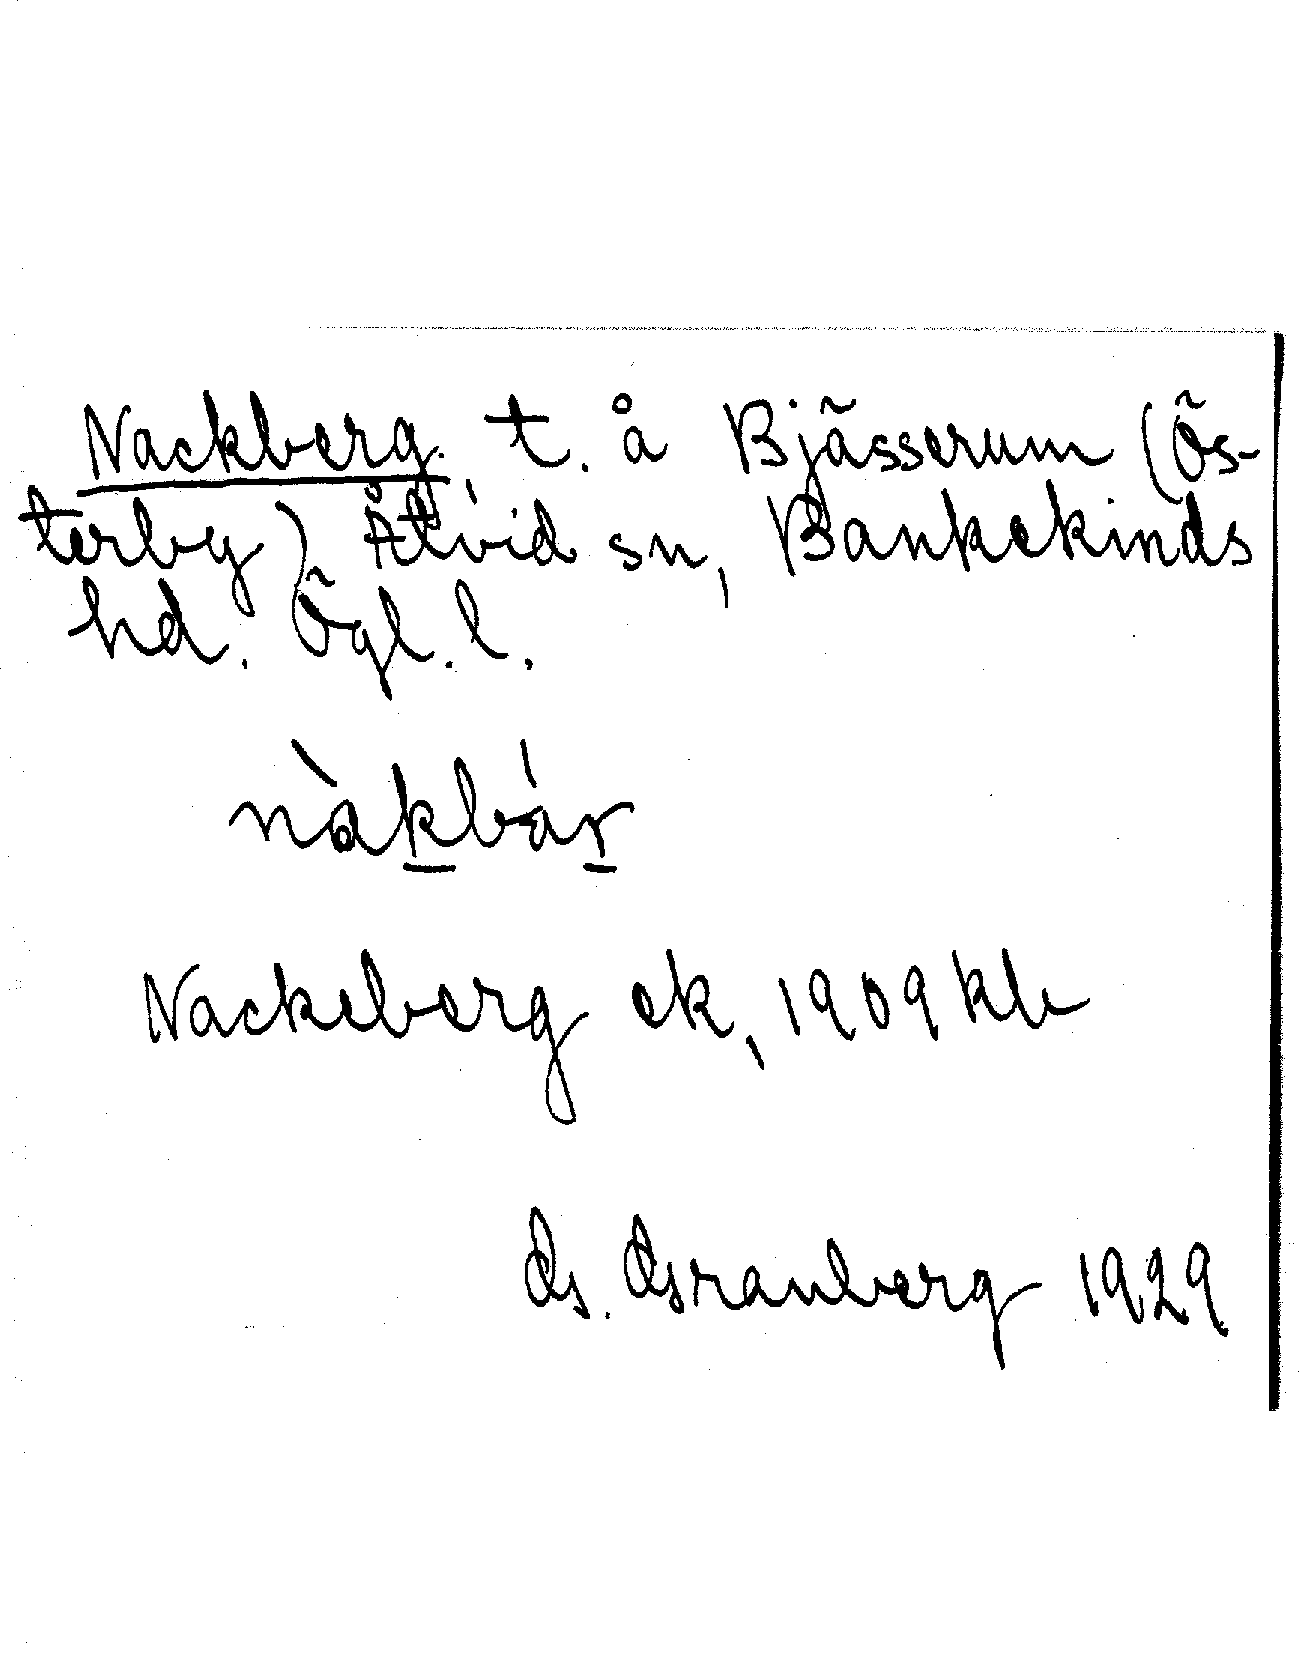 Nackberg t. å Bjässerum (Ös-
terby) Åtvid sn, Bankekinds
hd. Ögl. l.
nàkbár
Nackeberg ek, 1909 kb
G. Granberg 1929